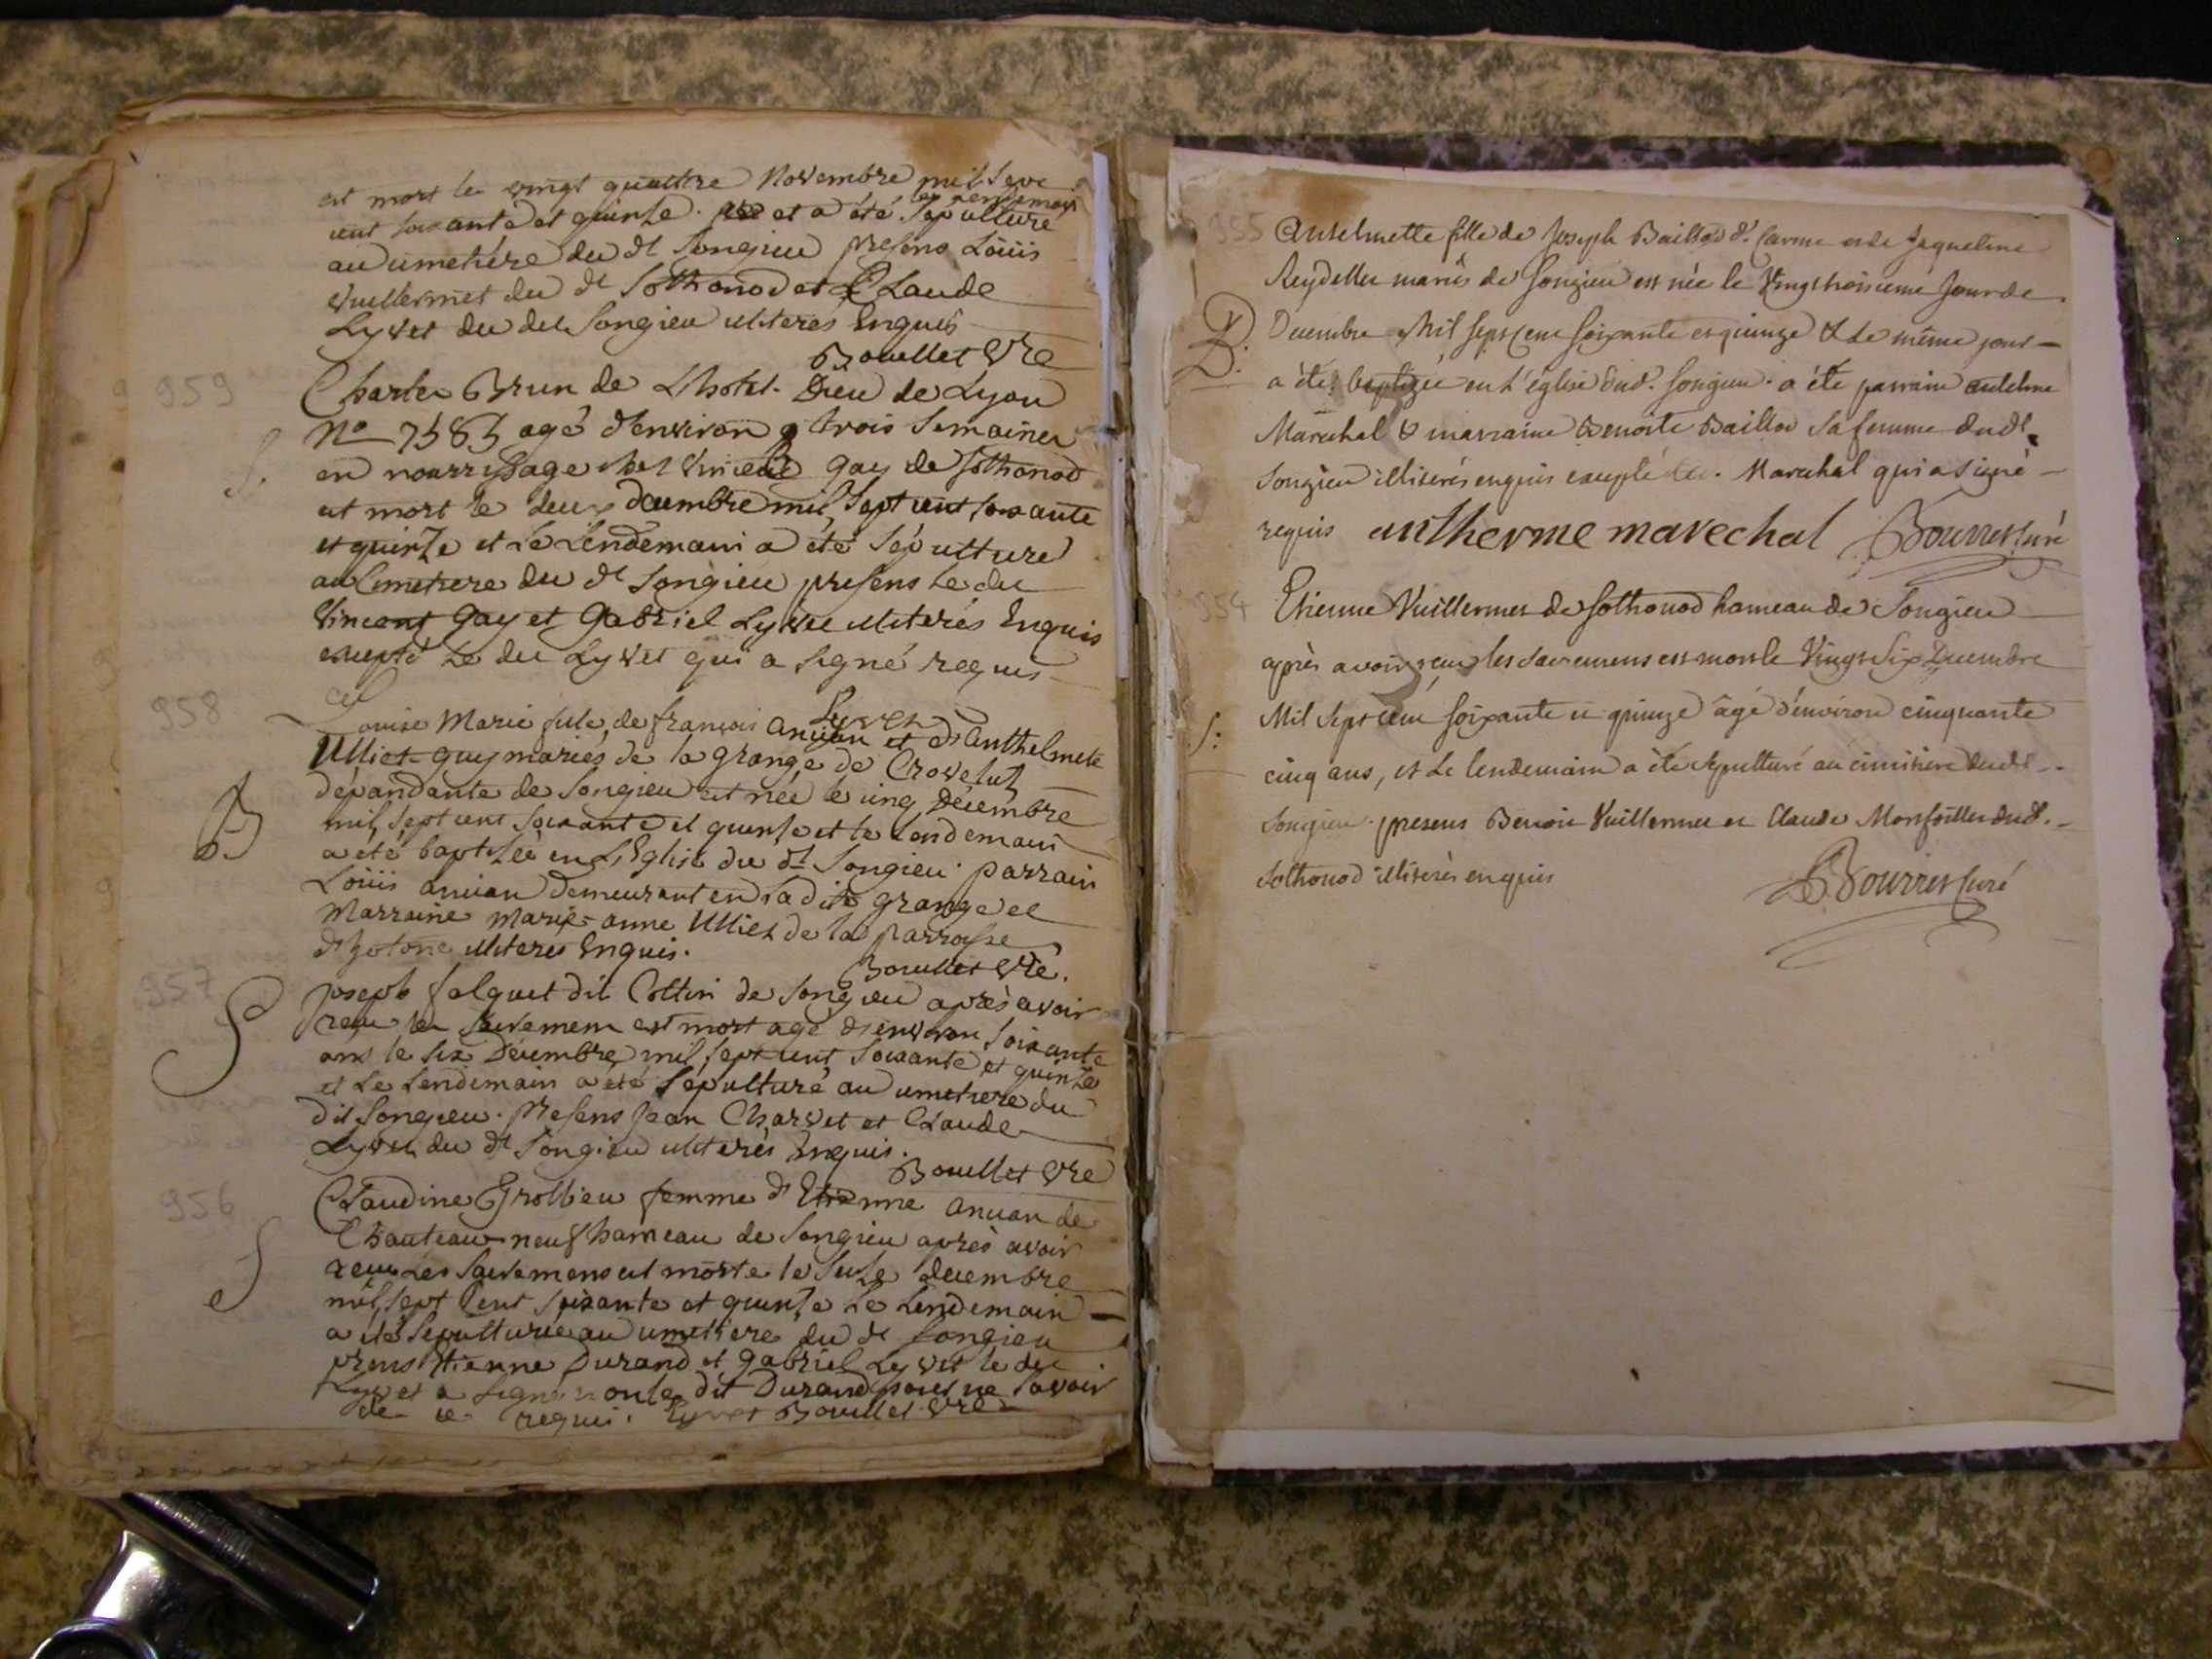 est mort le vingt quattre Novembre mil sept
cent soixante et quinze. et a été le lendemain sépulturé
au cimetiére du dt Songieu presens Loüis
Vuillermet du dt Sothonod et Claude
Lyvet du det Songieu illiterés Enquis
Bouillet Vre
959
Charles Brun de Lhotel-Dieu de Lyon
No 7585 agé d'environ trois Semaines
S.
en nourrissage chez Vincent Gay de Sothonod
est mort le deux decembre mil Sept cent soixante
et quinze et Le Lendemain a été Sépulturé
au Cimetiere du dt Songieu presens Le du
Vincent Gay et Gabriel Lyvet illiterés Enquis
excepté Le du Lyvet qui a signé requis
Lyvet
958
Louise Marie fille de françois Ancian et d'Anthelmete
Ulliet-Guy mariés de la grange de Crovelut
dépandante de Songieu est née le cinq Décembre
B
mil sept cent soixante et quinze et le Lendemain
a été baptisée en L'Eglise du dt Songieu. parrain
Loüis ancian demeurant en ladite grange et
Marraine Marie-anne Ulliet de la parroisse
d'hotone illiteres Enquis.
Bouillet Vre.
957
S
Joseph falquet dit Cottin de Songieu après avoir
reçu les Sacremens est mort agé d'environ soixante
ans le six Décembre mil sept cent soixante et quinze
et Le Lendemain a été sépulturé au cimetiere du
dit Songieu. presens Jean Charvet et Claude
Lyvet du dt Songieu illiterés Enquis.
Bouillet Vre
956
Claudine Grollieu femme d'Etienne Ancian de
S
Chauteau-neuf hameau de Songieu après avoir
reçu Les Sacremens est morte le seize decembre
mil sept Cent soixante et quinze Le Lendemain
a été Sepulturée au cimetiere du dt Songieu
prens Etienne Durand et Gabriel Lyvet le du
Lyvet a signé non le dit Durand pour ne savoir
de ce requis. Lyvet Bouillet Vre
955
Antelmette fille de Joseph Baillod d. Carme et de Jaqueline
Reydellet mariés de Songieu est née le Vingt troisieme Jour de
B.
Decembre Mil Sept Cent Soixante et quinze & Le même jour
a été baptizée en L'église dud. Songieu. a été parrain antelme
Marechal & marraine Benoite Baillod sa femme dudt
Songieu illiterés enquis excepté led. Marechal qui a signé
requis antherme marechal Bourret Curé
954
Etienne Vuillermet de Sothonod hameau de Songieu
après avoir reçu les Sacremens est mort le Vingt Six Decembre
S:
Mil Sept Cent Soixante et quinze âgé d'environ cinquante
cinq ans, et Le lendemain a été sépulturé au cimitiere dudt
Songieu. presens Benoit Vuillermet et Claude Monfoillet dud.
Sothonod illiterés enquis
Bourret Curé